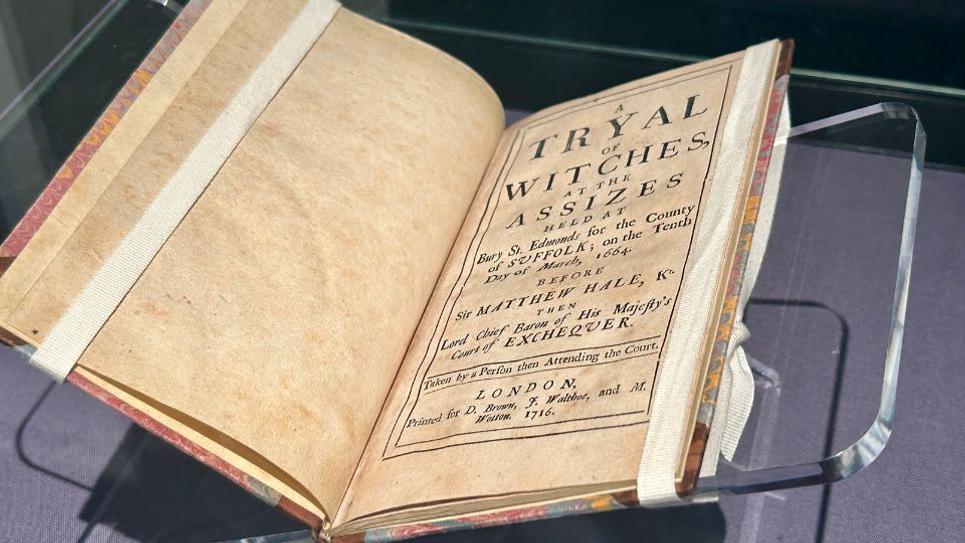 A
TRYAL
OF
WITCHES,
AT THE
ASSIZES
HELD AT
Bury St. Edmonds for the County
of SUFFOLK; on the Tenth
Day of March, 1664.
BEFORE
Sir MATTHEW HALE, Kt.
THEN
Lord Chief Baron of His Majeſty's
Court of EXCHEQUER.
Taken by a Perſon then Attending the Court.
LONDON,
Printed for D. Brown, J. Walthoe, and M.
Wotton. 1716.